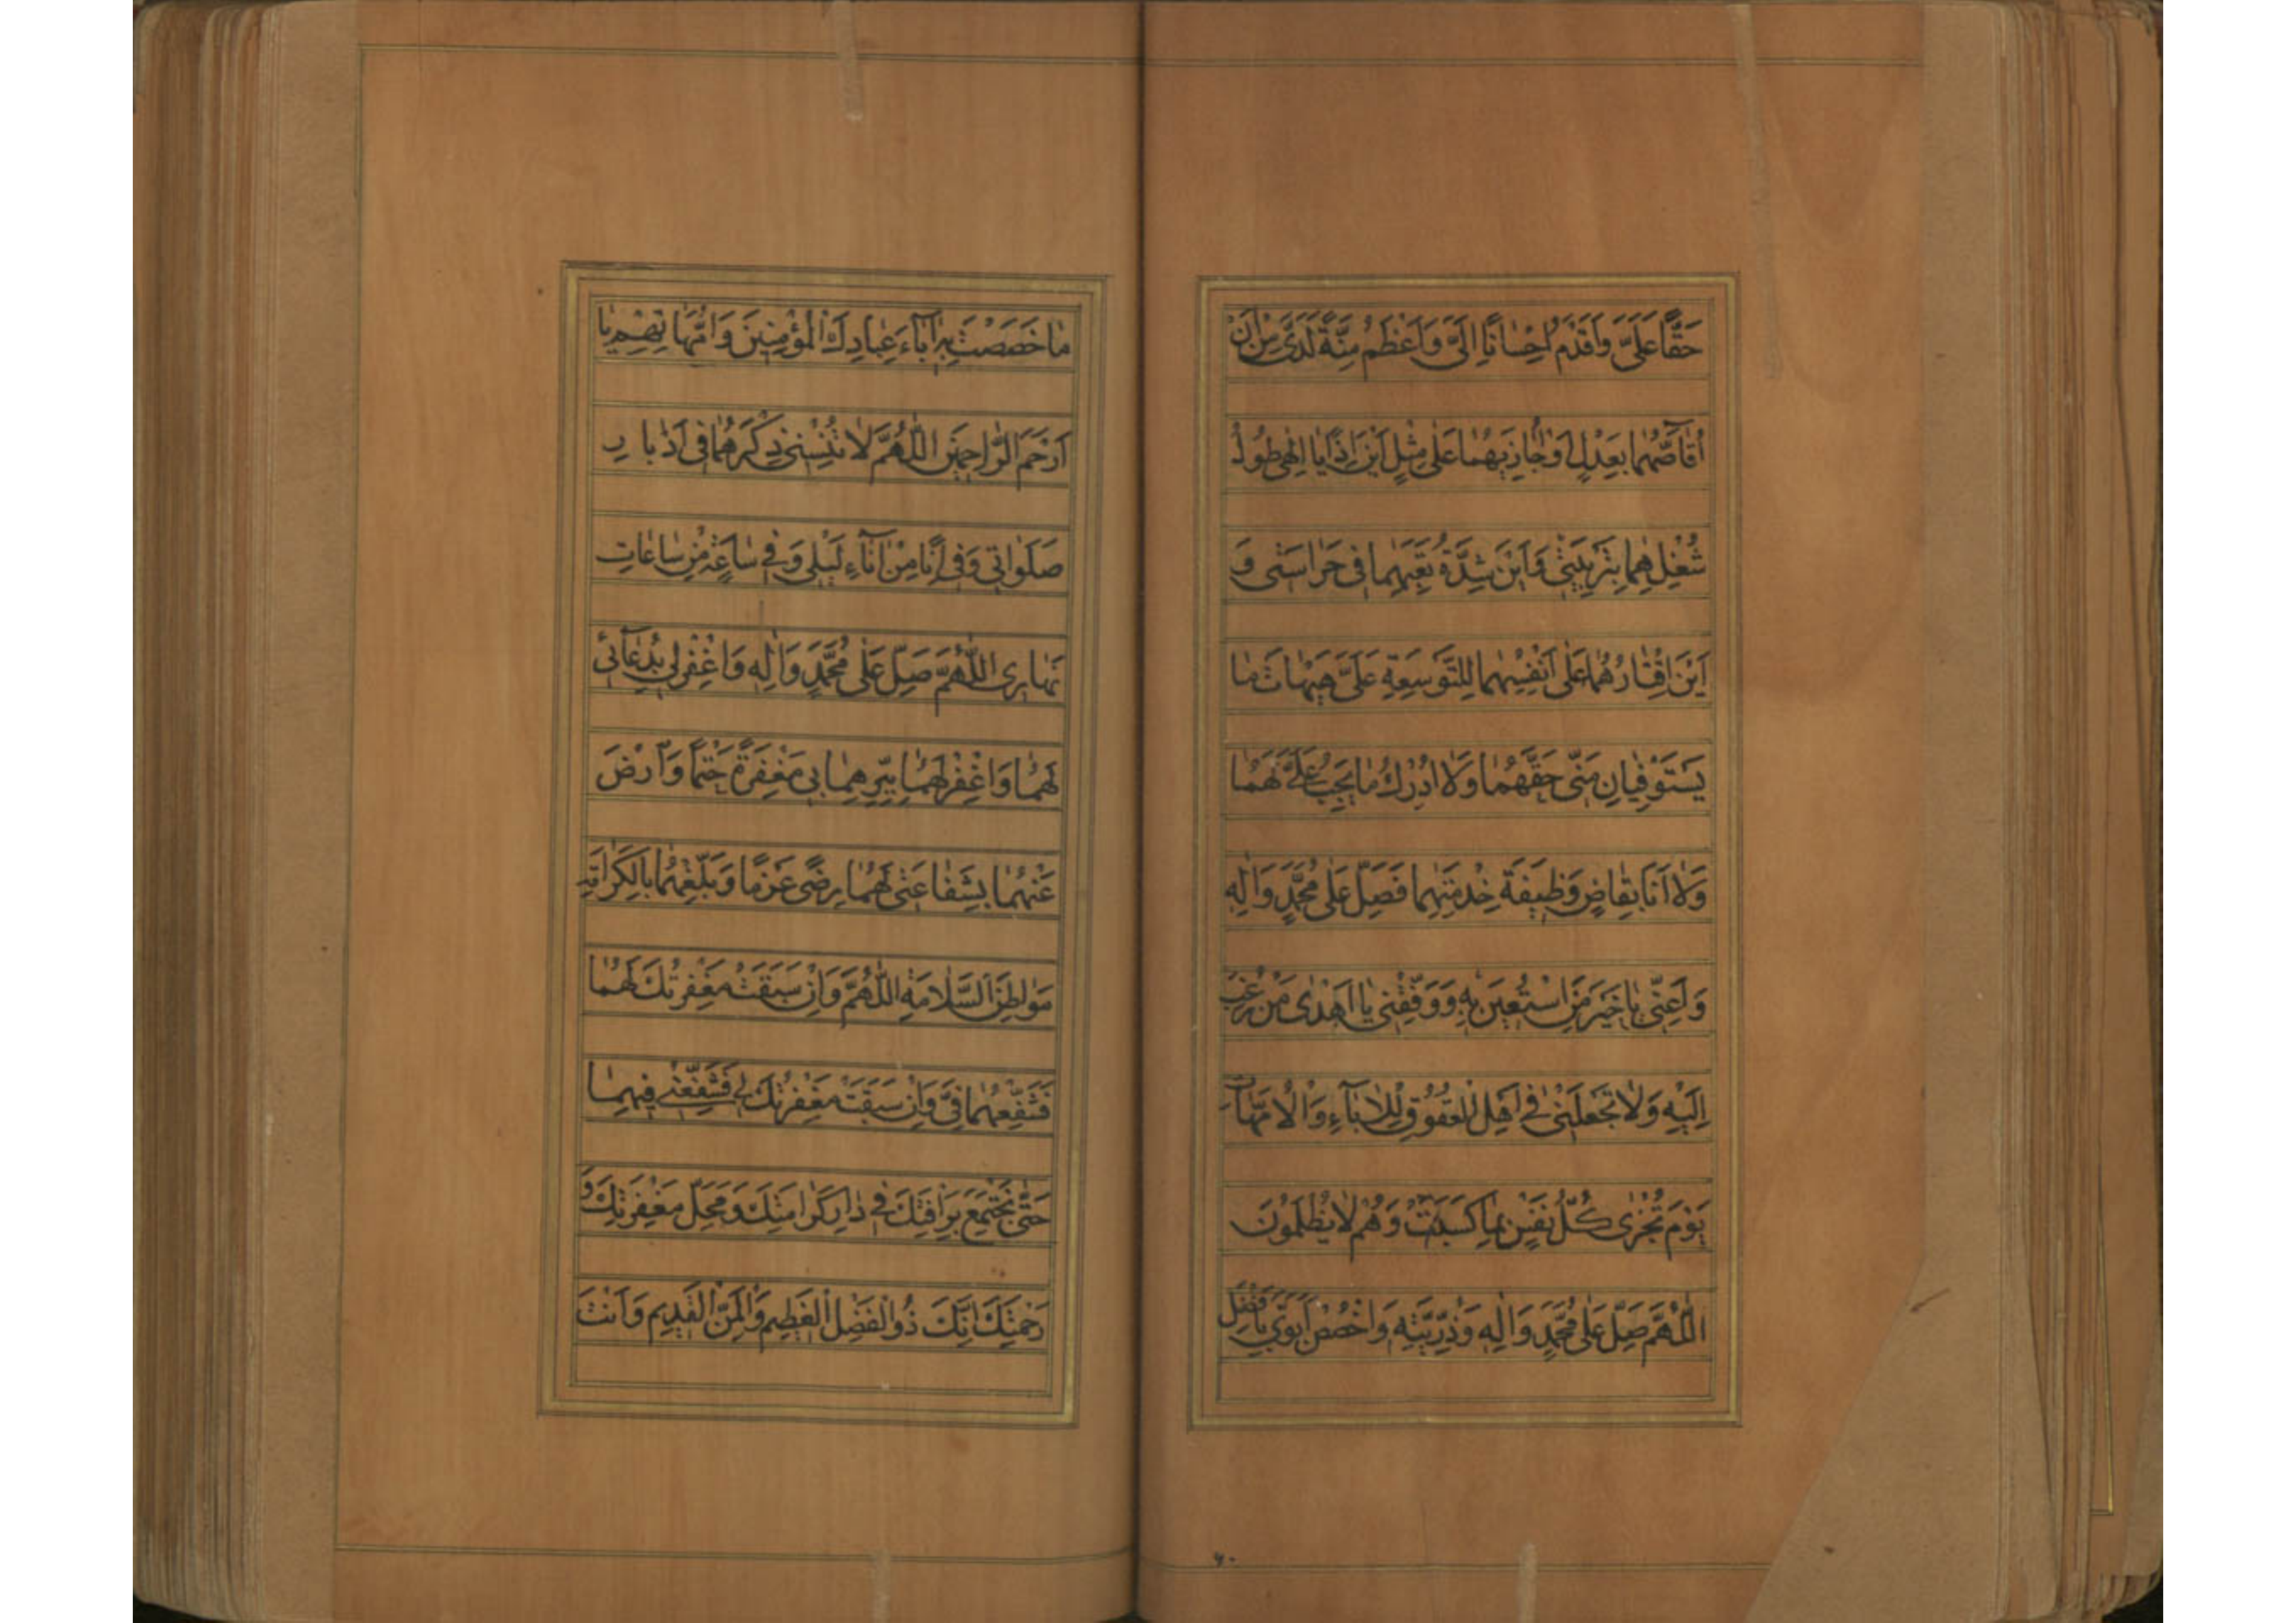 حَقًّا عَلَىَّ وَاَقْدَمُ اِحْسٰانًا اِلَىَّ وَاَعْظَمُ مِنَّةً لَدَىَّ مِنْ اَنْ
اُقٰآصَّهُمٰا بِعَدْلٍ اَوْ اُجٰازِيَهُمٰا عَلٰى مِثْلٍ اَيْنَ اِذًا يٰا اِلٰهى طُولُ
شُغْلِهِمٰا بِتَرْبِيَتى وَاَيْنَ شِدَّةُ تَعَبِهِمٰا فى حَرٰاسَتى وَ
اَيْنَ اِقْتٰارُهُمٰا عَلٰى اَنْفُسِهِمٰا لِلتَّوَسِعَةِ عَلَىَّ هَيْهٰاتَ مٰا
يَسْتَوْفِيٰانِ مِنّى حَقَّهُمٰا وَلٰا اُدْرِكُ مٰا يَجِبُ عَلَىَّ لَهُمٰا
وَلٰا اَنَا بِقٰاضٍ وَظيفَةَ خِدْمَتِهِمٰا فَصَلِّ عَلٰى مُحَمَّدٍ وَاٰلِهِ
وَاَعِنّى يٰا خَيْرَ مَنِ اسْتُعينَ بِهِ وَوَفِّقْنى يٰا اَهْدٰى مَنْ رُغِبَ
اِلَيْهِ وَلٰا تَجْعَلْنى فى اَهْلِ الْعُقُوقِ لِلْاٰبٰآءِ وَالْاُمَّهٰاتِ
يَوْمَ تُجْزٰى كُلُّ نَفْسٍ بِمٰا كَسَبَتْ وَهُمْ لٰا يُظْلَمُونَ
اَللّٰهُمَّ صَلِّ عَلٰى مُحَمَّدٍ وَاٰلِهِ وَذُرِّيَّتِهِ وَاخْصُصْ اَبَوَىَّ بِاَفْضَلِ
٦٠
مٰا خَصَصْتَ بِهِ اٰبٰآءَ عِبٰادِكَ الْمُؤْمِنينَ وَاُمَّهٰاتِهِمْ يٰا
اَرْحَمَ الرّٰاحِمينَ اَللّٰهُمَّ لٰا تُنْسِنى ذِكْرَهُمٰا فى اَدْبٰارِ
صَلَوٰاتى وَفى اِنًا مِنْ اٰنٰآءِ لَيْلى وَفى سٰاعَةٍ مِنْ سٰاعٰاتِ
نَهٰارى اَللّٰهُمَّ صَلِّ عَلٰى مُحَمَّدٍ وَاٰلِهِ وَاغْفِرْ لى بِدُعٰآئى
لَهُمٰا وَاغْفِرْ لَهُمٰا بِبِرِّهِمٰا بى مَغْفِرَةً حَتْمًا وَارْضَ
عَنْهُمٰا بِشَفٰاعَتى لَهُمٰا رِضًى عَزْمًا وَبَلِّغْهُمٰا بِالْكَرٰامَةِ
مَوٰاطِنَ السَّلٰامَةِ اَللّٰهُمَّ وَاِنْ سَبَقَتْ مَغْفِرَتُكَ لَهُمٰا
فَشَفِّعْهُمٰا فِىَّ وَاِنْ سَبَقَتْ مَغْفِرَتُكَ لى فَشَفِّعْنى فيهِمٰا
حَتّٰى نَجْتَمِعَ بِرَاْفَتِكَ فى دٰارِ كَرٰامَتِكَ وَمَحَلِّ مَغْفِرَتِكَ وَ
رَحْمَتِكَ اِنَّكَ ذُو الْفَضْلِ الْعَظيمِ وَالْمَنِّ الْقَديمِ وَاَنْتَ